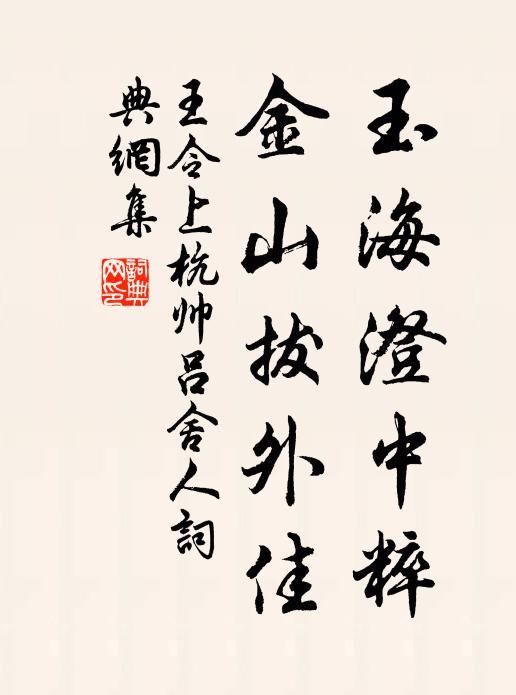 玉海澄中粹
金山拔外佳
王令上杭帅吕舍人詞
典網集
詞典网印